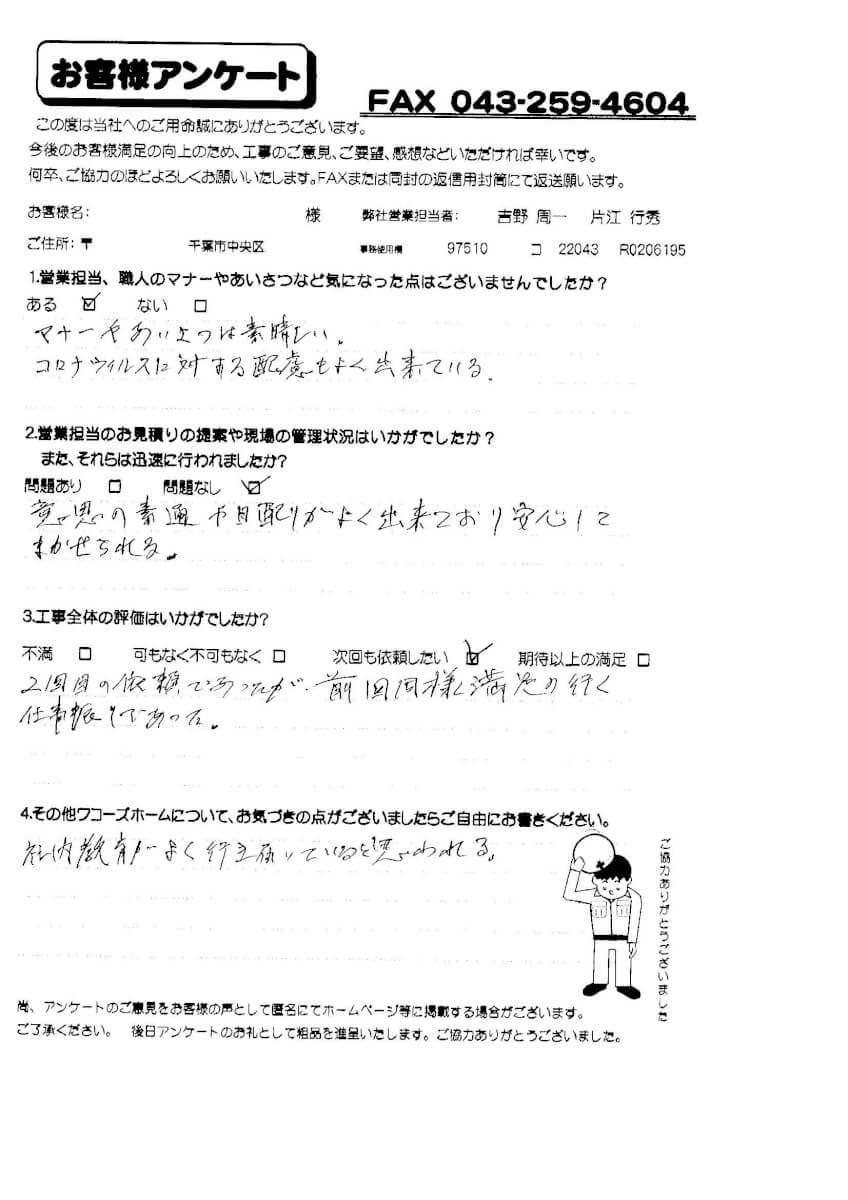 お客様アンケート
FAX 043-259-4604
この度は当社へのご用命誠にありがとうございます。
今後のお客様満足の向上のため、工事のご意見、ご要望、感想などいただければ幸いです。
何卒、ご協力のほどよろしくお願いいたします。FAXまたは同封の返信用封筒にて返送願います。
お客様名: 様 弊社営業担当者: 吉野 周一 片江 行秀
ご住所:〒 千葉市中央区 事務使用欄 97510 コ 22043 R0206195
1.営業担当、職人のマナーやあいさつなど気になった点はございませんでしたか?
ある ☑ ない □
マナーやあいさつは素晴しい。
コロナウィルスに対する配慮もよく出来ている。
2.営業担当のお見積りの提案や現場の管理状況はいかがでしたか?
また、それらは迅速に行われましたか?
問題あり □ 問題なし ☑
意思の素通や目配りがよく出来ており安心して
まかせられる。
3.工事全体の評価はいかがでしたか?
不満 □ 可もなく不可もなく □ 次回も依頼したい ☑ 期待以上の満足 □
2回目の依頼であったが、前回同様満足の行く
仕事振りであった。
4.その他ワコーズホームについて、お気づきの点がございましたらご自由にお書きください。
社内教育がよく行き届いていると思われる。
ご協力ありがとうございました
尚、アンケートのご意見をお客様の声として匿名にてホームページ等に掲載する場合がございます。
ご了承ください。 後日アンケートのお礼として粗品を進呈いたします。ご協力ありがとうございました。